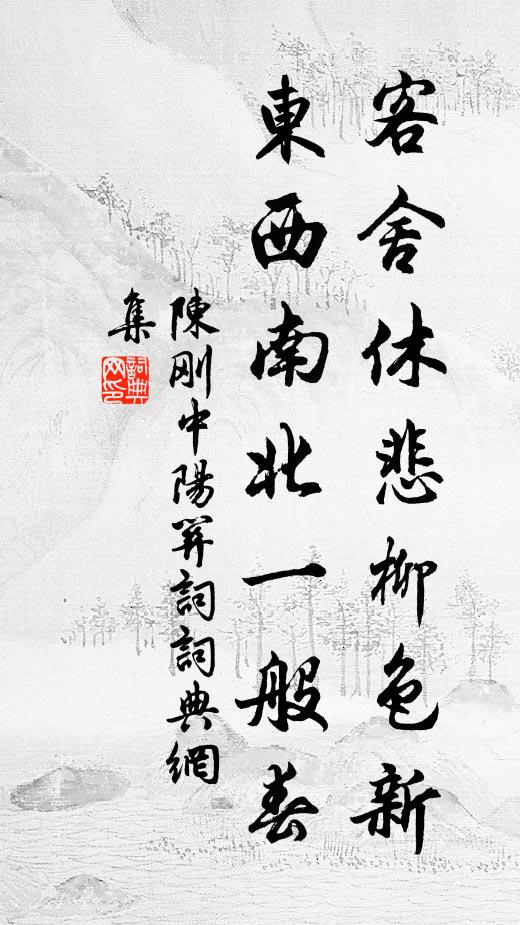 客舍休悲柳色新
東西南北一般春
陳剛中陽關詞詞典網
集
詞典
网印